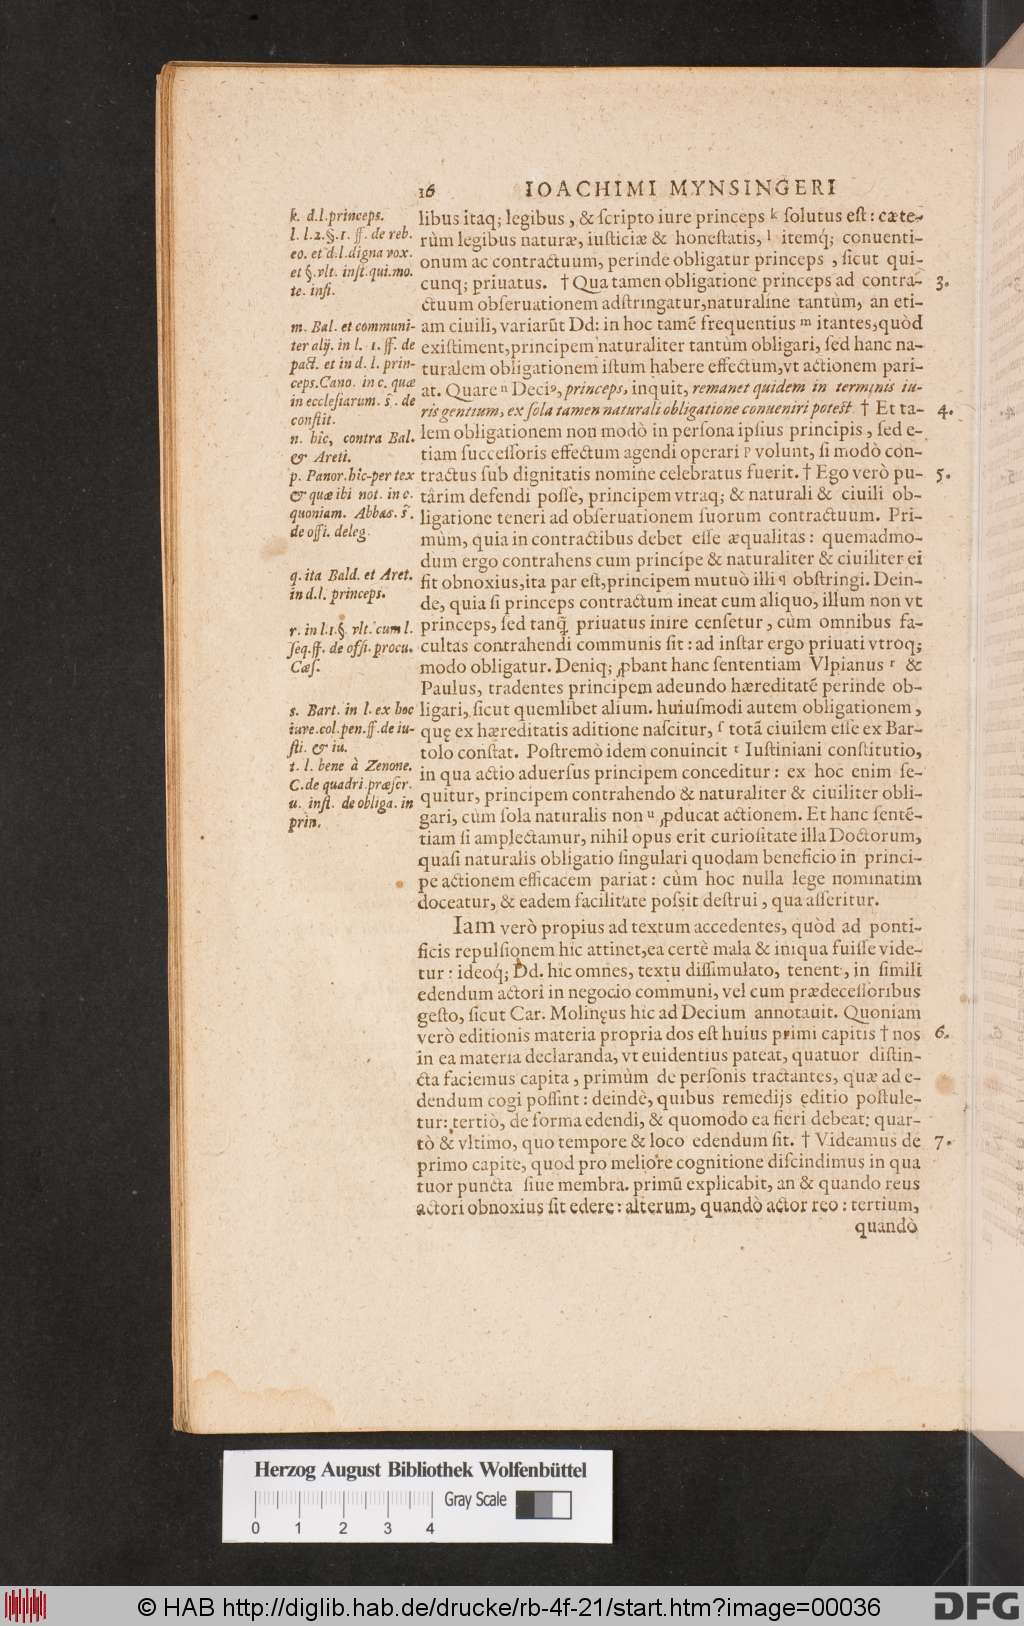 16 IOACHIMI MYNSINGERI
k. d.l.princeps.
l. l.2.§.1. ff. de reb.
eo. et d.l.digna vox.
et §.vlt. inst.qui.mo.
te. insi.
m. Bal. et communi-
ter alij. in l. 1. ff. de
pact. et in d. l. prin-
ceps.Cano. in c. quæ
in ecclesiarum. s̃. de
constit.
n. hic, contra Bal.
& Areti.
p. Panor.hic per tex
& quæ ibi not. in c.
quoniam. Abbas. s̃.
de offi. deleg.
q. ita Bald. et Aret.
in d.l. princeps.
r. in l.1.§. vlt. cum l.
seq.ff. de offi. procu.
Cæs.
s. Bart. in l. ex hoc
iure.col.pen.ff.de iu-
sti. & iu.
t. l. bene à Zenone.
C.de quadri præscr.
u. inst. de obliga. in
prin.
libus itaq; legibus, & scripto iure princeps k solutus est: cæte-
rùm legibus naturæ, iusticiæ & honestatis, l itemq́; conuenti-
onum ac contractuum, perinde obligatur princeps, sicut qui-
cunq; priuatus. † Qua tamen obligatione princeps ad contra- 3.
ctuum obseruationem adstringatur,naturaline tantùm, an eti-
am ciuili, variarũt Dd: in hoc tamẽ frequentius m itantes,quòd
existiment,principem naturaliter tantùm obligari, sed hanc na-
turalem obligationem istum habere effectum,vt actionem pari-
at. Quare n Deciꝰ, princeps, inquit, remanet quidem in terminis iu-
ris gentium, ex sola tamen naturali obligatione conueniri potest † Et ta- 4.
lem obligationem non modò in persona ipsius principis, sed e-
tiam successoris effectum agendi operari p volunt, si modò con-
tractus sub dignitatis nomine celebratus fuerit. † Ego verò pu- 5.
târim defendi posse, principem vtraq; & naturali & ciuili ob-
ligatione teneri ad obseruationem suorum contractuum. Pri-
mùm, quia in contractibus debet esse æqualitas: quemadmo-
dum ergo contrahens cum principe & naturaliter & ciuiliter ei
sit obnoxius,ita par est,principem mutuò illi q obstringi. Dein-
de, quia si princeps contractum ineat cum aliquo, illum non vt
princeps, sed tanq̃ priuatus inire censetur, cùm omnibus fa-
cultas contrahendi communis sit: ad instar ergo priuati vtroq;
modo obligatur. Deniq; ꝓbant hanc sententiam Vlpianus r &
Paulus, tradentes principem adeundo hæreditatẽ perinde ob-
ligari, sicut quemlibet alium. huiusmodi autem obligationem,
quę ex hæreditatis aditione nascitur, s totã ciuilem esse ex Bar-
tolo constat. Postremò idem conuincit t Iustiniani constitutio,
in qua actio aduersus principem conceditur: ex hoc enim se-
quitur, principem contrahendo & naturaliter & ciuiliter obli-
gari, cùm sola naturalis non u ꝓducat actionem. Et hanc sentẽ-
tiam si amplectamur, nihil opus erit curiositate illa Doctorum,
quasi naturalis obligatio singulari quodam beneficio in princi-
pe actionem efficacem pariat: cùm hoc nulla lege nominatim
doceatur, & eadem facilitate possit destrui, qua asseritur.
Iam verò propius ad textum accedentes, quòd ad ponti-
ficis repulsionem hic attinet,ea certè mala & iniqua fuisse vide-
tur: ideoq́; Dd. hic omnes, textu dissimulato, tenent, in simili
edendum actori in negocio communi, vel cum prædecessoribus
gesto, sicut Car. Molinęus hic ad Decium annotauit. Quoniam
verò editionis materia propria dos est huius primi capitis † nos 6.
in ea materia declaranda, vt euidentius pateat, quatuor distin-
cta faciemus capita, primùm de personis tractantes, quæ ad e-
dendum cogi possint: deindè, quibus remedijs editio postule-
tur: tertiò, de forma edendi, & quomodo ea fieri debeat: quar-
tò & vltimo, quo tempore & loco edendum sit. † Videamus de 7.
primo capite, quod pro meliore cognitione discindimus in qua
tuor puncta siue membra. primũ explicabit, an & quando reus
actori obnoxius sit edere: alterum, quandò actor reo: tertium,
quandò
Herzog August Bibliothek Wolfenbüttel
Gray Scale
0 1 2 3 4
© HAB http://diglib.hab.de/drucke/rb-4f-21/start.htm?image=00036
DFG